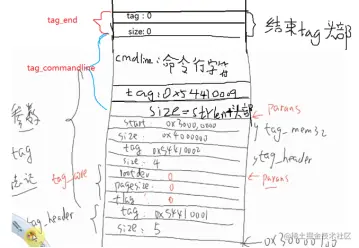 tag_end
tag : 0
size: 0
结束tag头部
tag_commandline
cmdline:命令行字符
tag:0x54410009
size=strlen+头部
params
start 0x3000,0000
size: 0x4000000
tag_mem32
tag 0x54410002
size = 4
tag_header
参数
tag
rootdev 0
pagesize: 0
params
flag: 0
tag_core
tag_header
tag: 0x54410001
size: 5
@稀土掘金技术社区